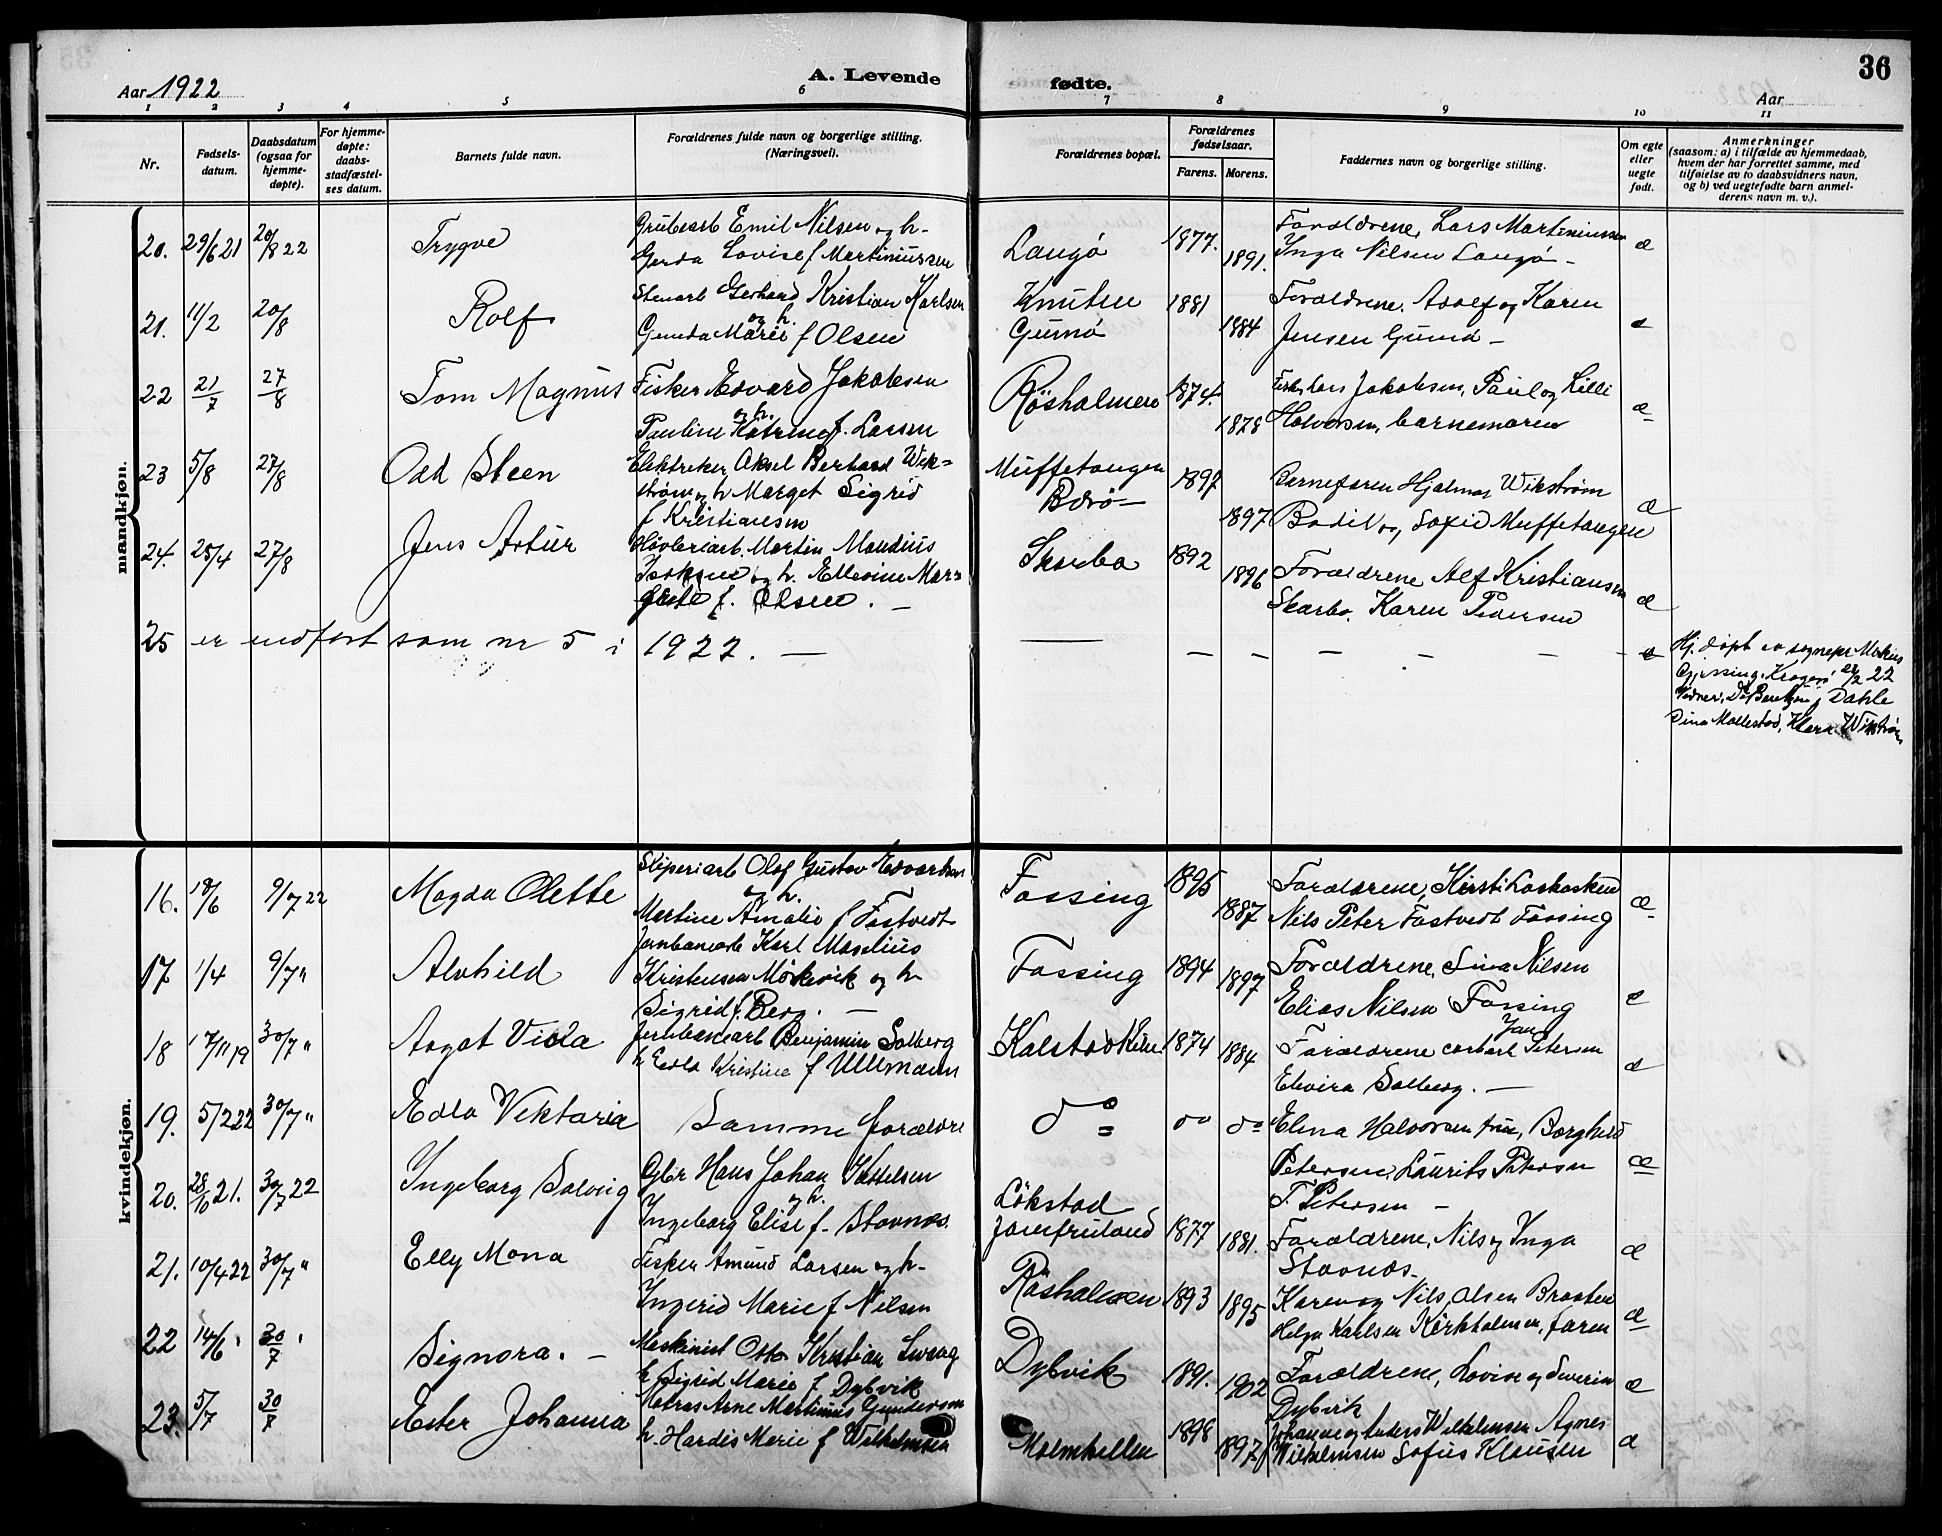 Aar 1922
A. Levende
fødte.
36
Aar
1 2 3 4 5 6 7 8 9 10 11
Nr.
Fødsels-
datum.
Daabsdatum
(ogsaa for
hjemme-
døpte).
For hjemme-
døpte:
daabs-
stadfæstel-
ses datum.
Barnets fulde navn.
Forældrenes fulde navn og borgerlige stilling.
(Næringsvei).
Forældrenes bopæl.
Forældrenes
fødselsaar.
Farens. Morens.
Faddernes navn og borgerlige stilling.
Om egte
eller
uegte
født.
Anmerkninger
(saasom: a) i tilfælde av hjemmedaab,
hvem der har forrettet samme, med
tilføielse av to daabsvidners navn,
og b) ved uegtefødte barn anmel-
derens navn m. v.).
mandkjøn.
20. 29/6 21 20/8 22 Trygve
Grubearb Emil Nilsen og h.
Gerda Lovise f Martiniussen
Langø 1877. 1891.
Forældrene, Lars Martiniussen
Inga Nilsen Langø - æ
21. 11/2 20/8 Rolf
Stenarb Gerhard Kristian Karlsen
og h.
Gunda Marie f Olsen
Knutsen
Gumø 1881 1884
Forældrene. Adolf og Karen
Jensen Gumø - æ
22 21/7 27/8 Tom Magnus
Fisker Edvard Jakobsen
og h.
Pauline Katrine f. Larsen
Rösholmen 1874. 1878
Lars Jakobsen, Paul og Lilli
Halvorsen, barnemoren æ
23 5/8 27/8 Odd Steen
Elektriker Aksel Bertrand Wik=
strøm og h Marget Sigrid
f Kristiansen
Muffetangen
Borø - 1897 1897
Barnefaren Hjalmar Wikström
Bodil og Sofie Muffetangen æ
24. 25/4 27/8 Jens Artur
Høvleriarb. Martin Maudius
Isaksen og h. Ellevine Mar=
grete f. Olsen. -
Skarbo 1892 1896
Forældrene Alf Kristiansen
Skarbo. Karen Pedersen æ
25 er indført som nr 5 i 1922. -
Hj. døpt av sognepr
Gjessing. Kragerø 22
Dahle
Dina Mollestad, Klara Wikstrøm
kvindekjøn.
16. 18/6 9/7 22 Magda Olette
Sliperiarb Olaf Gustav Edvardsen
og h.
Martine Amalie f Fostvedt
Fossing 1895 1887
Forældrene, Kirsti
Nils Peter Fostvedt Fossing æ
17 1/4 9/7 " Alvhild
Jernbanearb Karl Maselius
Kristensen Mörkvik og h
Sigrid f. Berg. -
Fossing 1894 1897
Forældrene, Sina Nilsen
Elias Nilsen Fossing æ
18 17/11 19 30/7 " Aagot Viola
Jernbanearb Benjamin Solberg
h Edla Kristine f Ullmann
Kalstadkilen 1874 1884
Jan
Forældrene Petersen
Elvira Solberg. - æ
19. 5/2 22 30/7 " Edla Viktoria
Samme forældre
do do do
Elina Halvorsen frue, Borghild
Petersen, Laurits Petersen
T. Petersen - æ
20. 28/10 21. 30/7 22 Ingeborg Solveig
Gbr Hans Johan Kittelsen
og h.
Ingeborg Elise f. Stavnæs.
Lökstad
Jomfruland 1877 1881.
Forældrene, Nils og Inga
Stavnæs. æ
21. 10/4 22 30/7 " Elly Mona
Fisker Amund Larsen og h.
Ingerid Marie f Nilsen
Röshalmen 1893 1895
Karen og Nils Olsen Braaten
Helga Karlsen Kirkholmen, faren æ
22 14/6 " 30/7 " Signora. -
Maskinist Otto Kristian
h Sigrid Marie f Dybvik
Dybvik 1891. 1902
Forældrene, Lovise og Severin
Dybvik æ
23. 5/7 30/7 Ester Johanna
Matros Arne Martinius Gundersen
h. Hardis Marie f Wilhelmsen
Malmhellen 1898 1897
Johanne og Anders Wilhelmsen Agnes
Wilhelmsen Sofus Klausen æ